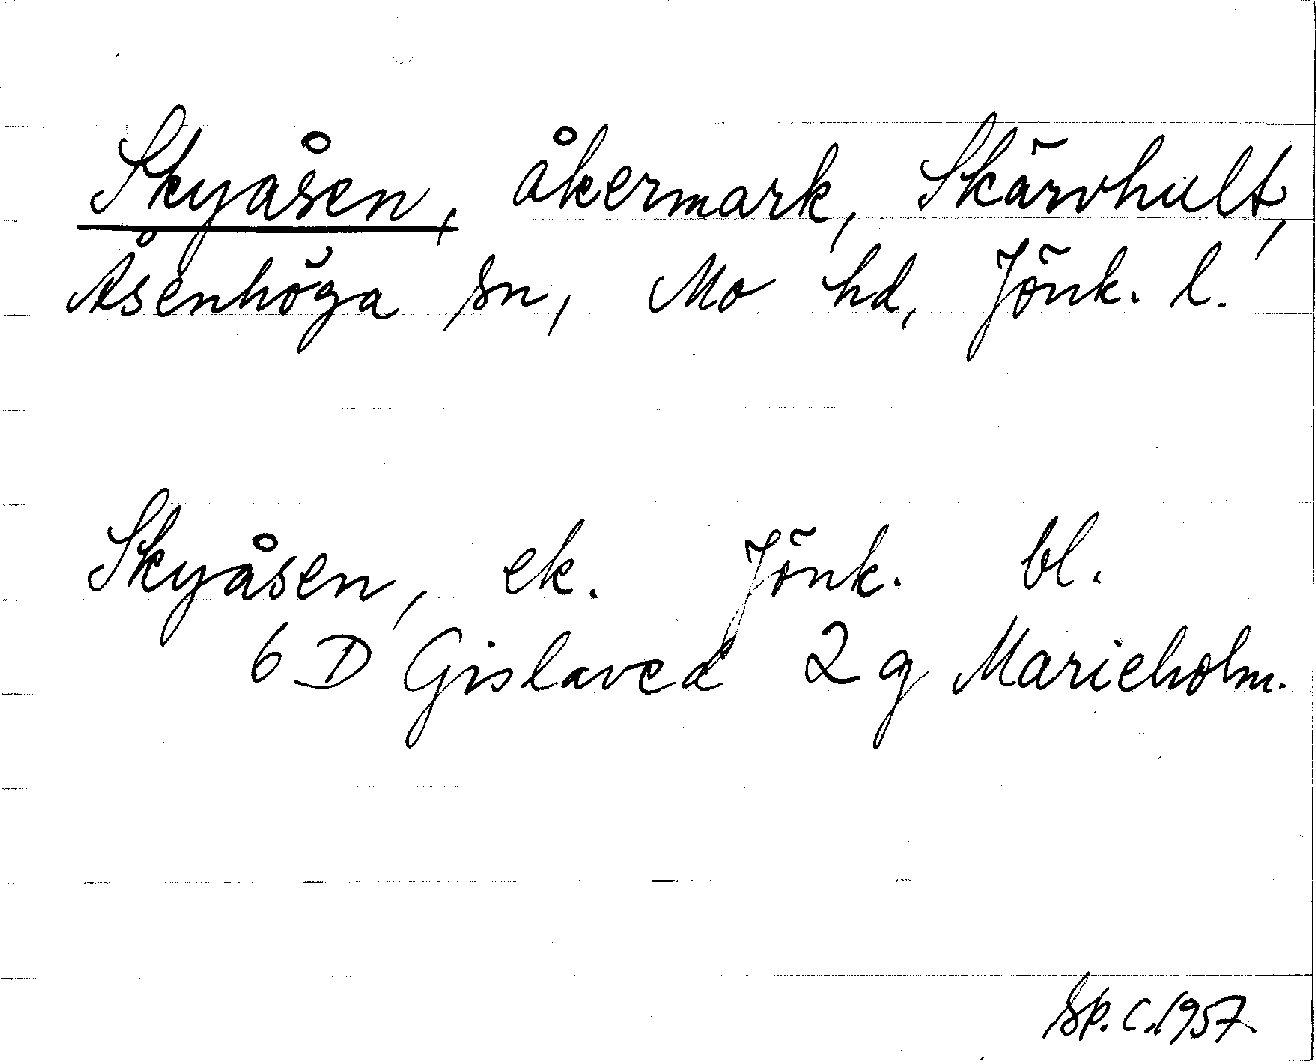 Skyåsen, åkermark, Skärvhult,
Åsenhöga sn, Mo hd, Jönk. l.
Skyåsen, ek. Jönk. bl.
6 D Gislaved 2 g Marieholm.
Sp. C. 1957